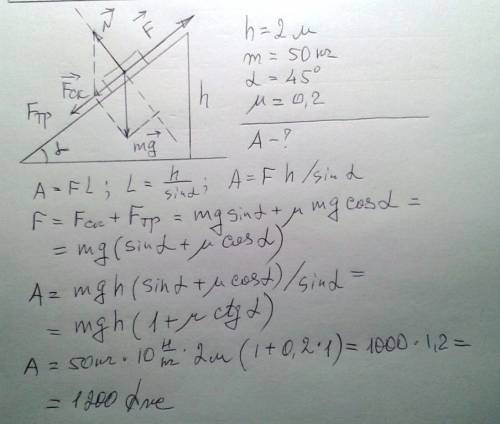 N
F
h = 2 м
m = 50 кг
α = 45°
μ = 0,2
Fск
Fтр
h
α
mg
A - ?
A = FL ; L = h/sinα ; A = F h/sinα
F = Fск + Fтр = mg sinα + μ mg cosα =
= mg (sinα + μ cosα)
A = mgh (sinα + μ cosα)/sinα =
= mgh (1 + μ ctg α)
A = 50 кг · 10 н/кг · 2м (1 + 0,2 · 1) = 1000 · 1,2 =
= 1200 Дж